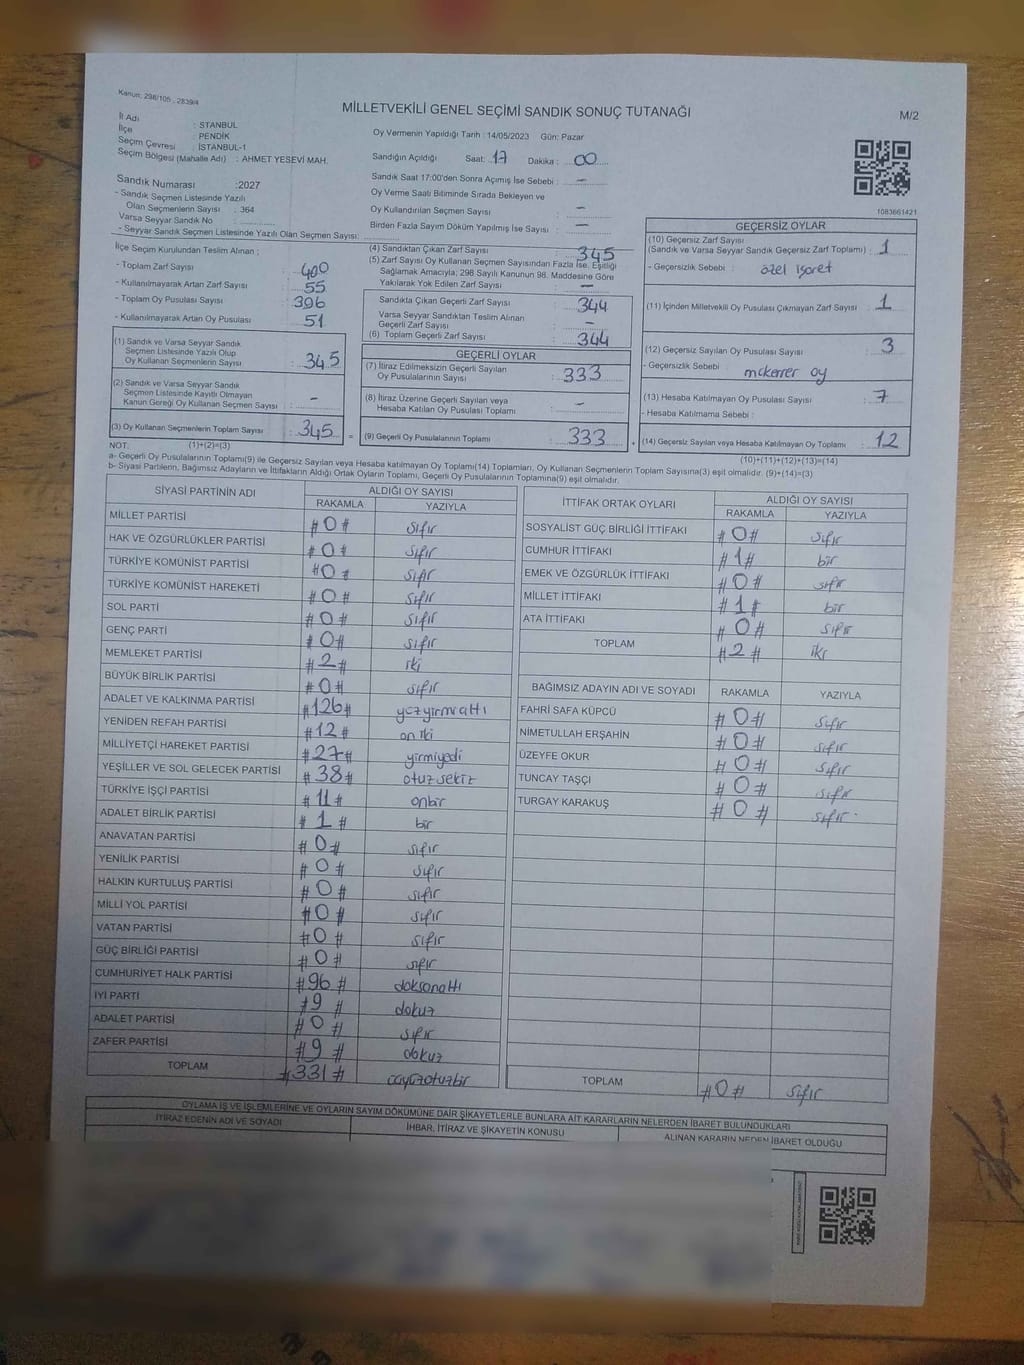 Kanun: 298/105 , 2839/4
MİLLETVEKİLİ GENEL SEÇİMİ SANDIK SONUÇ TUTANAĞI
M/2
İl Adı : STANBUL
İlçe : PENDİK
Seçim Çevresi : İSTANBUL-1
Seçim Bölgesi (Mahalle Adı) : AHMET YESEVİ MAH.
Sandık Numarası :2027
- Sandık Seçmen Listesinde Yazılı
Olan Seçmenlerin Sayısı : 364
Varsa Seyyar Sandık No :
- Seyyar Sandık Seçmen Listesinde Yazılı Olan Seçmen Sayısı:
Oy Vermenin Yapıldığı Tarih : 14/05/2023 Gün: Pazar
Sandığın Açıldığı Saat: 17 Dakika : 00
Sandık Saati 17:00'den Sonra Açımış İse Sebebi : -
Oy Verme Saati Bitiminde Sırada Bekleyen ve
Oy Kullandırılan Seçmen Sayısı : -
Birden Fazla Sayım Döküm Yapılmış İse Sayısı : -
1083661421
İlçe Seçim Kurulundan Teslim Alınan ;
- Toplam Zarf Sayısı : 400
- Kullanılmayarak Artan Zarf Sayısı : 55
- Toplam Oy Pusulası Sayısı : 396
- Kullanılmayarak Artan Oy Pusulası : 51
(1) Sandık ve Varsa Seyyar Sandık
Seçmen Listesinde Yazılı Olup
Oy Kullanan Seçmenlerin Sayısı : 345
(2) Sandık ve Varsa Seyyar Sandık
Seçmen Listesinde Kayıtlı Olmayan
Kanun Gereği Oy Kullanan Seçmen Sayısı : -
(3) Oy Kullanan Seçmenlerin Toplam Sayısı : 345
(4) Sandıktan Çıkan Zarf Sayısı : 345
(5) Zarf Sayısı Oy Kullanan Seçmen Sayısından Fazla İse, Eşitliği
Sağlamak Amacıyla; 298 Sayılı Kanunun 98. Maddesine Göre
Yakılarak Yok Edilen Zarf Sayısı : -
Sandıkta Çıkan Geçerli Zarf Sayısı : 344
Varsa Seyyar Sandıktan Teslim Alınan
Geçerli Zarf Sayısı : -
(6) Toplam Geçerli Zarf Sayısı : 344
GEÇERLİ OYLAR
(7) İtiraz Edilmeksizin Geçerli Sayılan
Oy Pusulalarının Sayısı : 333
(8) İtiraz Üzerine Geçerli Sayılan veya
Hesaba Katılan Oy Pusulası Toplamı : -
= (9) Geçerli Oy Pusulalarının Toplamı : 333 +
GEÇERSİZ OYLAR
(10) Geçersiz Zarf Sayısı
(Sandık ve Varsa Seyyar Sandık Geçersiz Zarf Toplamı) : 1
- Geçersizlik Sebebi : özel işaret
(11) İçinden Milletvekili Oy Pusulası Çıkmayan Zarf Sayısı : 1
(12) Geçersiz Sayılan Oy Pusulası Sayısı : 3
- Geçersizlik Sebebi : mükerrer oy
(13) Hesaba Katılmayan Oy Pusulası Sayısı : 7
- Hesaba Katılmama Sebebi :
(14) Geçersiz Sayılan veya Hesaba Katılmayan Oy Toplamı : 12
NOT. (1)+(2)=(3)
(10)+(11)+(12)+(13)=(14)
a- Geçerli Oy Pusulalarının Toplamı(9) ile Geçersiz Sayılan veya Hesaba katılmayan Oy Toplamı(14) Toplamları, Oy Kullanan Seçmenlerin Toplam Sayısına(3) eşit olmalıdır. (9)+(14)=(3)
b- Siyasi Partilerin, Bağımsız Adayların ve İttifakların Aldığı Ortak Oyların Toplamı, Geçerli Oy Pusulalarının Toplamına(9) eşit olmalıdır.
SİYASİ PARTİNİN ADI ALDIĞI OY SAYISI
RAKAMLA YAZIYLA
MİLLET PARTİSİ #0# sıfır
HAK VE ÖZGÜRLÜKLER PARTİSİ #0# sıfır
TÜRKİYE KOMÜNİST PARTİSİ #0# sıfır
TÜRKİYE KOMÜNİST HAREKETİ #0# sıfır
SOL PARTİ #0# sıfır
GENÇ PARTİ #0# sıfır
MEMLEKET PARTİSİ #2# iki
BÜYÜK BİRLİK PARTİSİ #0# sıfır
ADALET VE KALKINMA PARTİSİ #126# yüzyirmialtı
YENİDEN REFAH PARTİSİ #12# on iki
MİLLİYETÇİ HAREKET PARTİSİ #27# yirmiyedi
YEŞİLLER VE SOL GELECEK PARTİSİ #38# otuzsekiz
TÜRKİYE İŞÇİ PARTİSİ #11# onbir
ADALET BİRLİK PARTİSİ #1# bir
ANAVATAN PARTİSİ #0# sıfır
YENİLİK PARTİSİ #0# sıfır
HALKIN KURTULUŞ PARTİSİ #0# sıfır
MİLLİ YOL PARTİSİ #0# sıfır
VATAN PARTİSİ #0# sıfır
GÜÇ BİRLİĞİ PARTİSİ #0# sıfır
CUMHURİYET HALK PARTİSİ #96# doksanaltı
İYİ PARTİ #9# dokuz
ADALET PARTİSİ #0# sıfır
ZAFER PARTİSİ #9# dokuz
TOPLAM #331# üçyüzotuzbir
İTTİFAK ORTAK OYLARI ALDIĞI OY SAYISI
RAKAMLA YAZIYLA
SOSYALİST GÜÇ BİRLİĞİ İTTİFAKI #0# sıfır
CUMHUR İTTİFAKI #1# bir
EMEK VE ÖZGÜRLÜK İTTİFAKI #0# sıfır
MİLLET İTTİFAKI #1# bir
ATA İTTİFAKI #0# sıfır
TOPLAM #2# iki
BAĞIMSIZ ADAYIN ADI VE SOYADI RAKAMLA YAZIYLA
FAHRİ SAFA KÜPCÜ #0# sıfır
NİMETULLAH ERŞAHİN #0# sıfır
ÜZEYFE OKUR #0# sıfır
TUNCAY TAŞÇI #0# sıfır
TURGAY KARAKUŞ #0# sıfır
TOPLAM #0# sıfır
OYLAMA İŞ VE İŞLEMLERİNE VE OYLARIN SAYIM DÖKÜMÜNE DAİR ŞİKAYETLERLE BUNLARA AİT KARARLARIN NELERDEN İBARET BULUNDUKLARI
İTİRAZ EDENİN ADI VE SOYADI İHBAR, İTİRAZ VE ŞİKAYETİN KONUSU ALINAN KARARIN NEDEN İBARET OLDUĞU